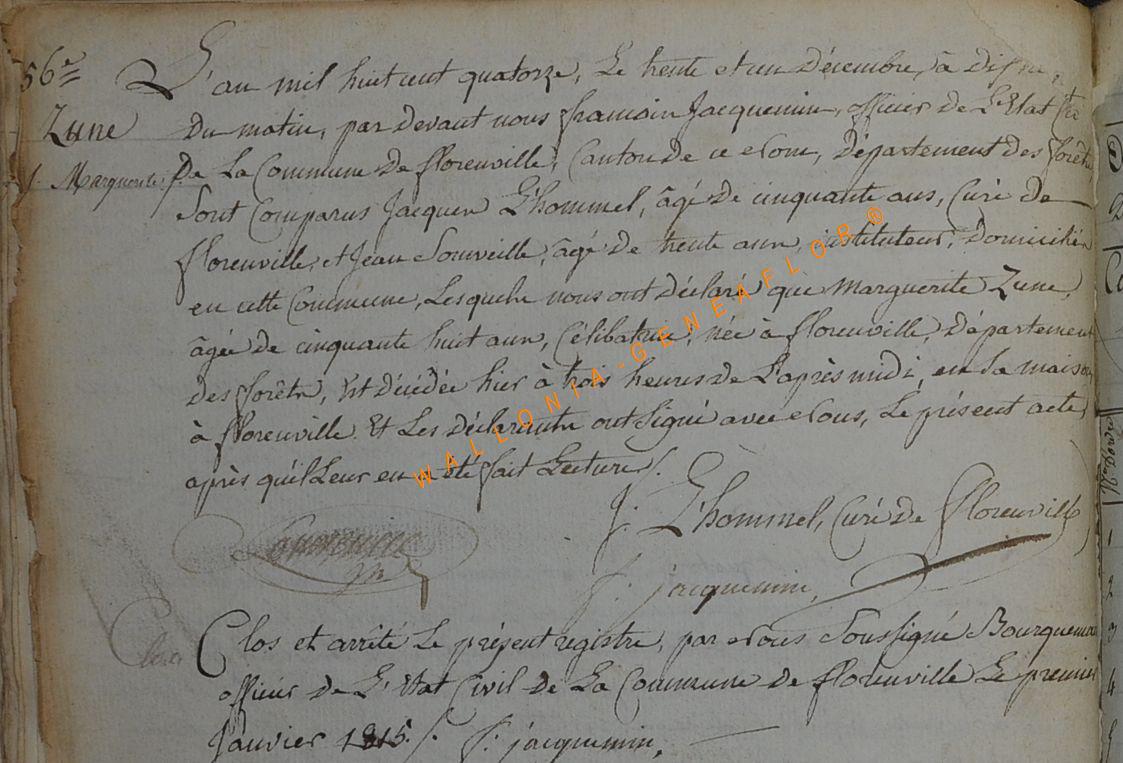 56e
Zune
Marguerite
L'an mil huit cent quatorze, Le trente et un Décembre, à dix
du matin, par devant nous françois Jacquemin, officier de L'Etat
De La Commune de florenville, Canton de ce nom, Département des forêts,
Sont Comparus Jacques L'hommel, âgé de cinquante ans, Curé de
florenville, et Jean, âgé de trente ans, instituteur, Domiciliés
en cette Commune, Lesquels nous ont déclaré que Marguerite Zune,
âgée de cinquante huit ans, Célibataire, née à florenville, Département
des forêts, Est décédée hier à trois heures de L'après midi, en sa maison
à florenville. Et Les déclarants ont Signé avec Nous, Le présent acte,
après qu'il Leur en a été fait Lecture.
J. L'hommel, Curé de florenville
f. jacquemin,
Clos et arrêté Le présent registre, par Nous Soussigné Bourguemai
officier de L'Etat Civil de La Commune de florenville Le premier
Janvier 1815. f. jacquemin,
WALLONIA-GENEAFLOR®